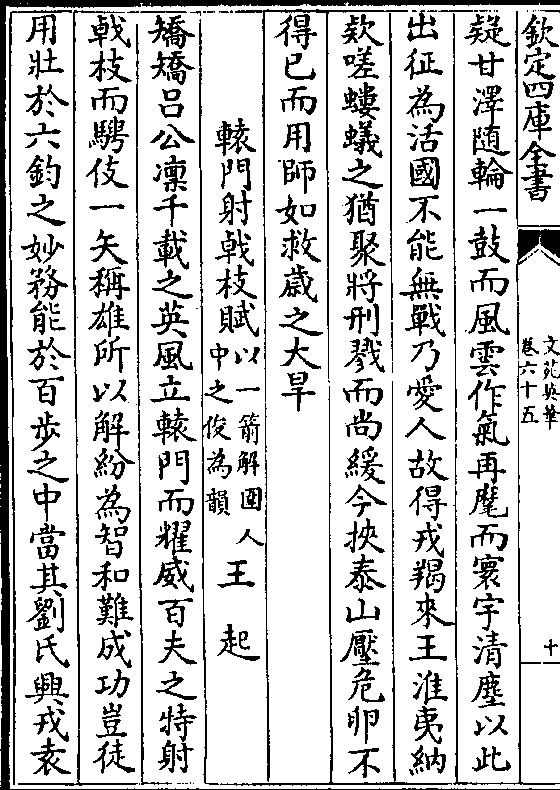 欽定四庫全書
文苑英華
卷六十五
十
疑甘澤随輪一鼓而風雲作氣再麾而寰宇清塵以此
出征為活國不能無戰乃愛人故得戎羯來王淮夷納
欵嗟螻蟻之猶聚將刑戮而尚緩今挾泰山壓危卵不
得已而用師如救歳之大旱
轅門射戟枝賦以一箭解圍人中之俊為韻 王起
矯矯吕公凛千載之英風立轅門而耀威百夫之特射
戟枝而騁伎一矢稱雄所以解紛為智和難成功豈徒
用壯於六鈞之妙務能於百歩之中當其劉氏興戎袁